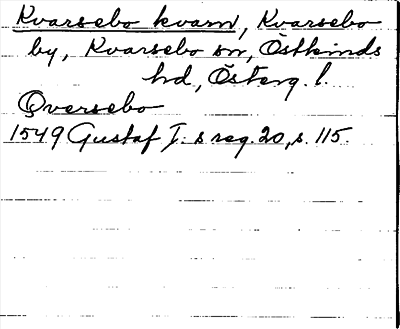 Kvarsebo kvarn, Kvarsebo
by, Kvarsebo sn, Östkinds
hd, Österg. l.
Qversebo
1549 Gustaf I:s reg. 20, s. 115.